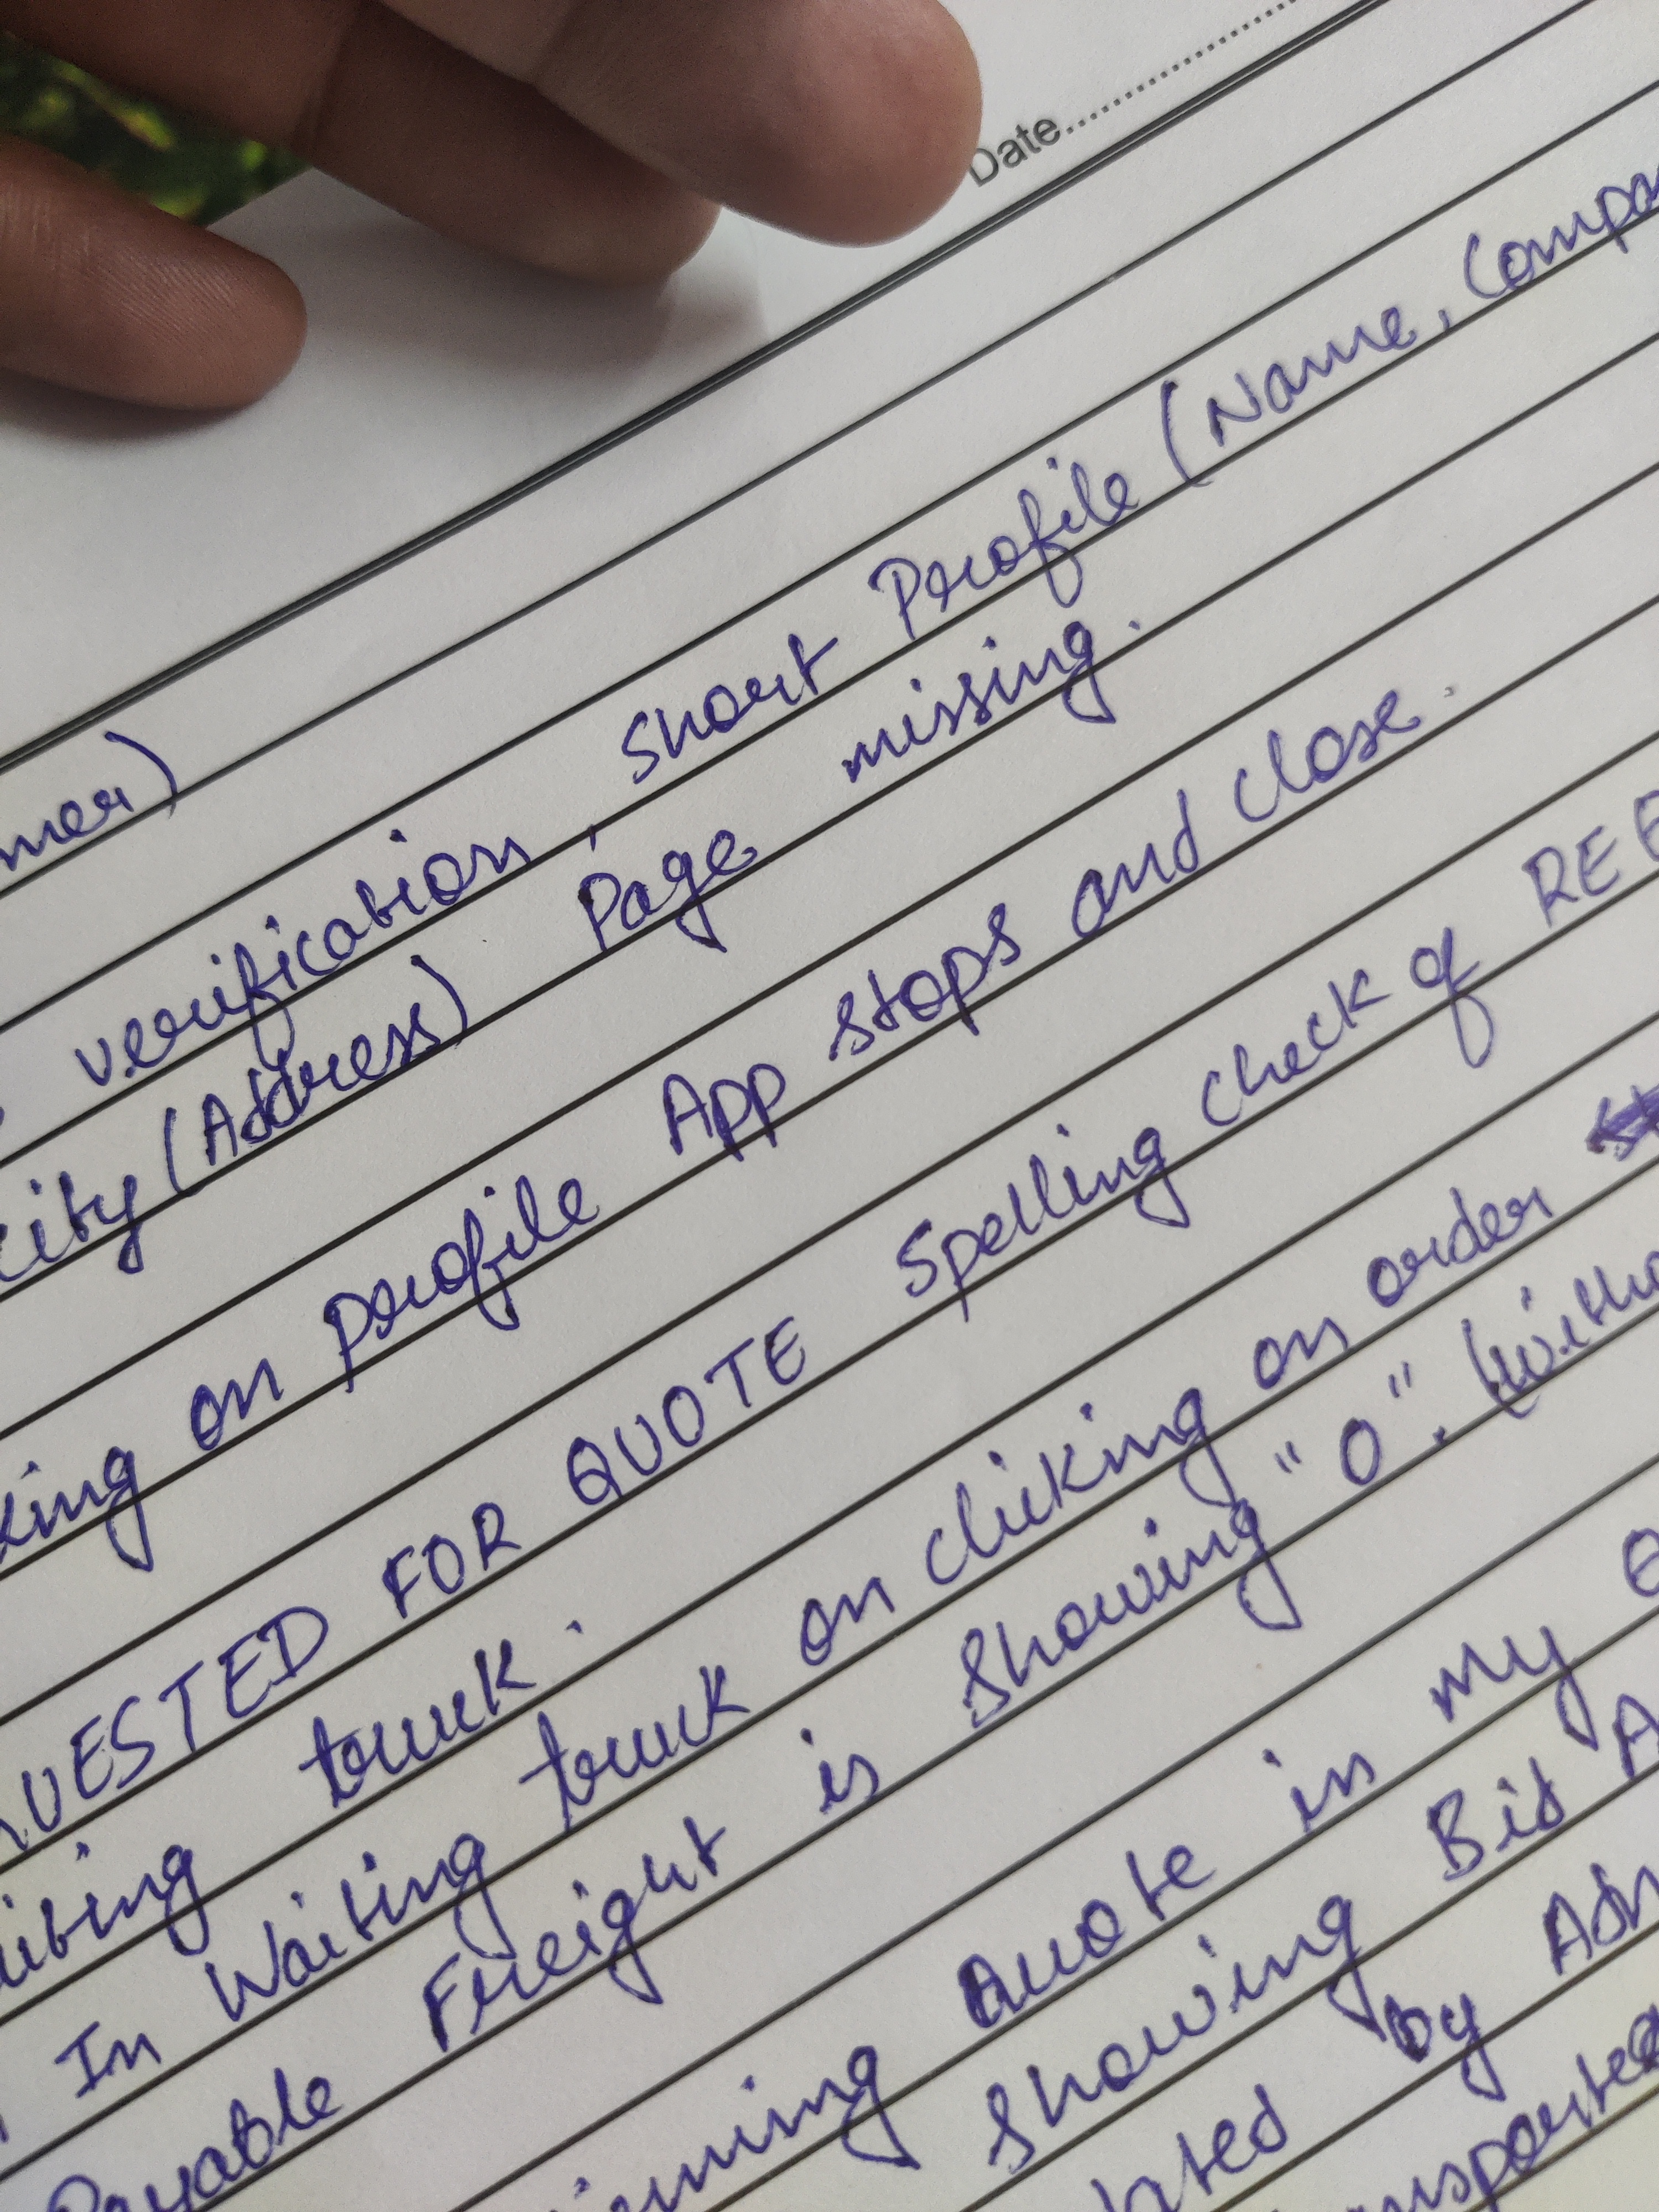 Date....................
mer)
verification, Short Profile (Name, Compa
city (Address) Page missing.
king on profile App stops and close.
UESTED FOR QUOTE Spelling check of RE
iting truck.
In Waiting truck on clicking on order
Payable Freight is Showing "0". (Witho
Quote in my
Showing Bid A
ated by Ad